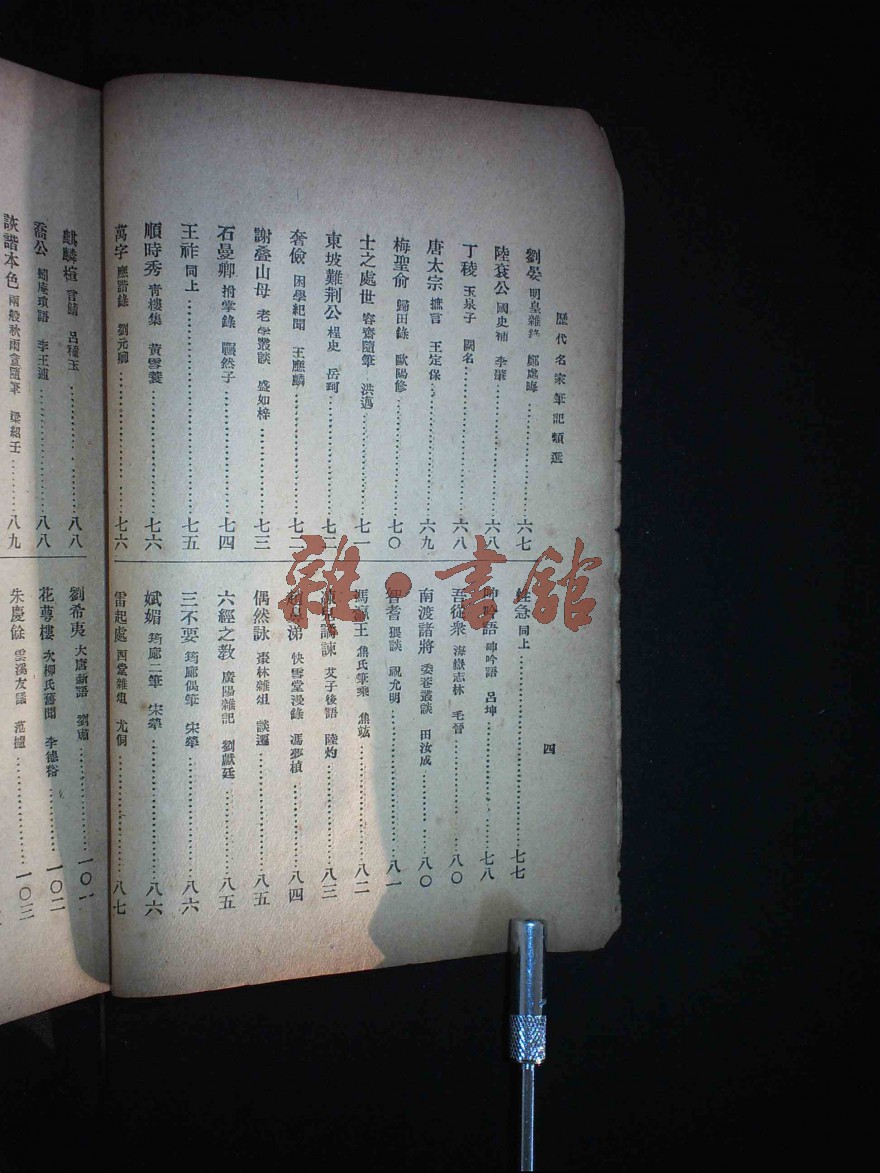 歷代名家筆記類選
四
劉晏 明皇雜錄 鄭處晦 六七
陸袞公 國史補 李肇 六八
丁稜 玉泉子 闕名 六八
唐太宗 摭言 王定保 六九
梅聖俞 歸田錄 歐陽修 七〇
士之處世 容齋隨筆 洪邁 七一
東坡難荆公 桯史 岳珂 七二
奢儉 困學紀聞 王應麟
謝叠山母 老學叢談 盛如梓 七三
石曼卿 拊掌錄 囅然子 七四
王祚 同上 七五
順時秀 青樓集 黃雪蓑 七六
萬字 應諧錄 劉元卿 七六
性急 同上 七七
呻吟語 呻吟語 呂坤 七八
吾從衆 海嶽志林 毛晉 八〇
南渡諸將 委巷叢談 田汝成 八〇
智者 猥談 祝允明 八一
馮瀛王 焦氏筆乘 焦竑 八二
諫 艾子後語 陸灼 八三
涕 快雪堂漫錄 馮夢楨 八四
偶然詠 棗林雜俎 談遷 八五
六經之教 廣陽雜記 劉獻廷 八五
三不要 筠廊偶筆 宋犖 八六
斌媚 筠廊二筆 宋犖 八六
雷起處 西堂雜俎 尤侗 八七
麒麟楦 言鯖 呂種玉 八八
喬公 蚓庵瑣語 李王逋 八八
詼諧本色 兩般秋雨盦隨筆 梁紹壬 八九
劉希夷 大唐新語 劉肅 一〇一
花萼樓 次柳氏舊聞 李德裕 一〇二
朱慶餘 雲溪友議 范攄 一〇三
雜·書館